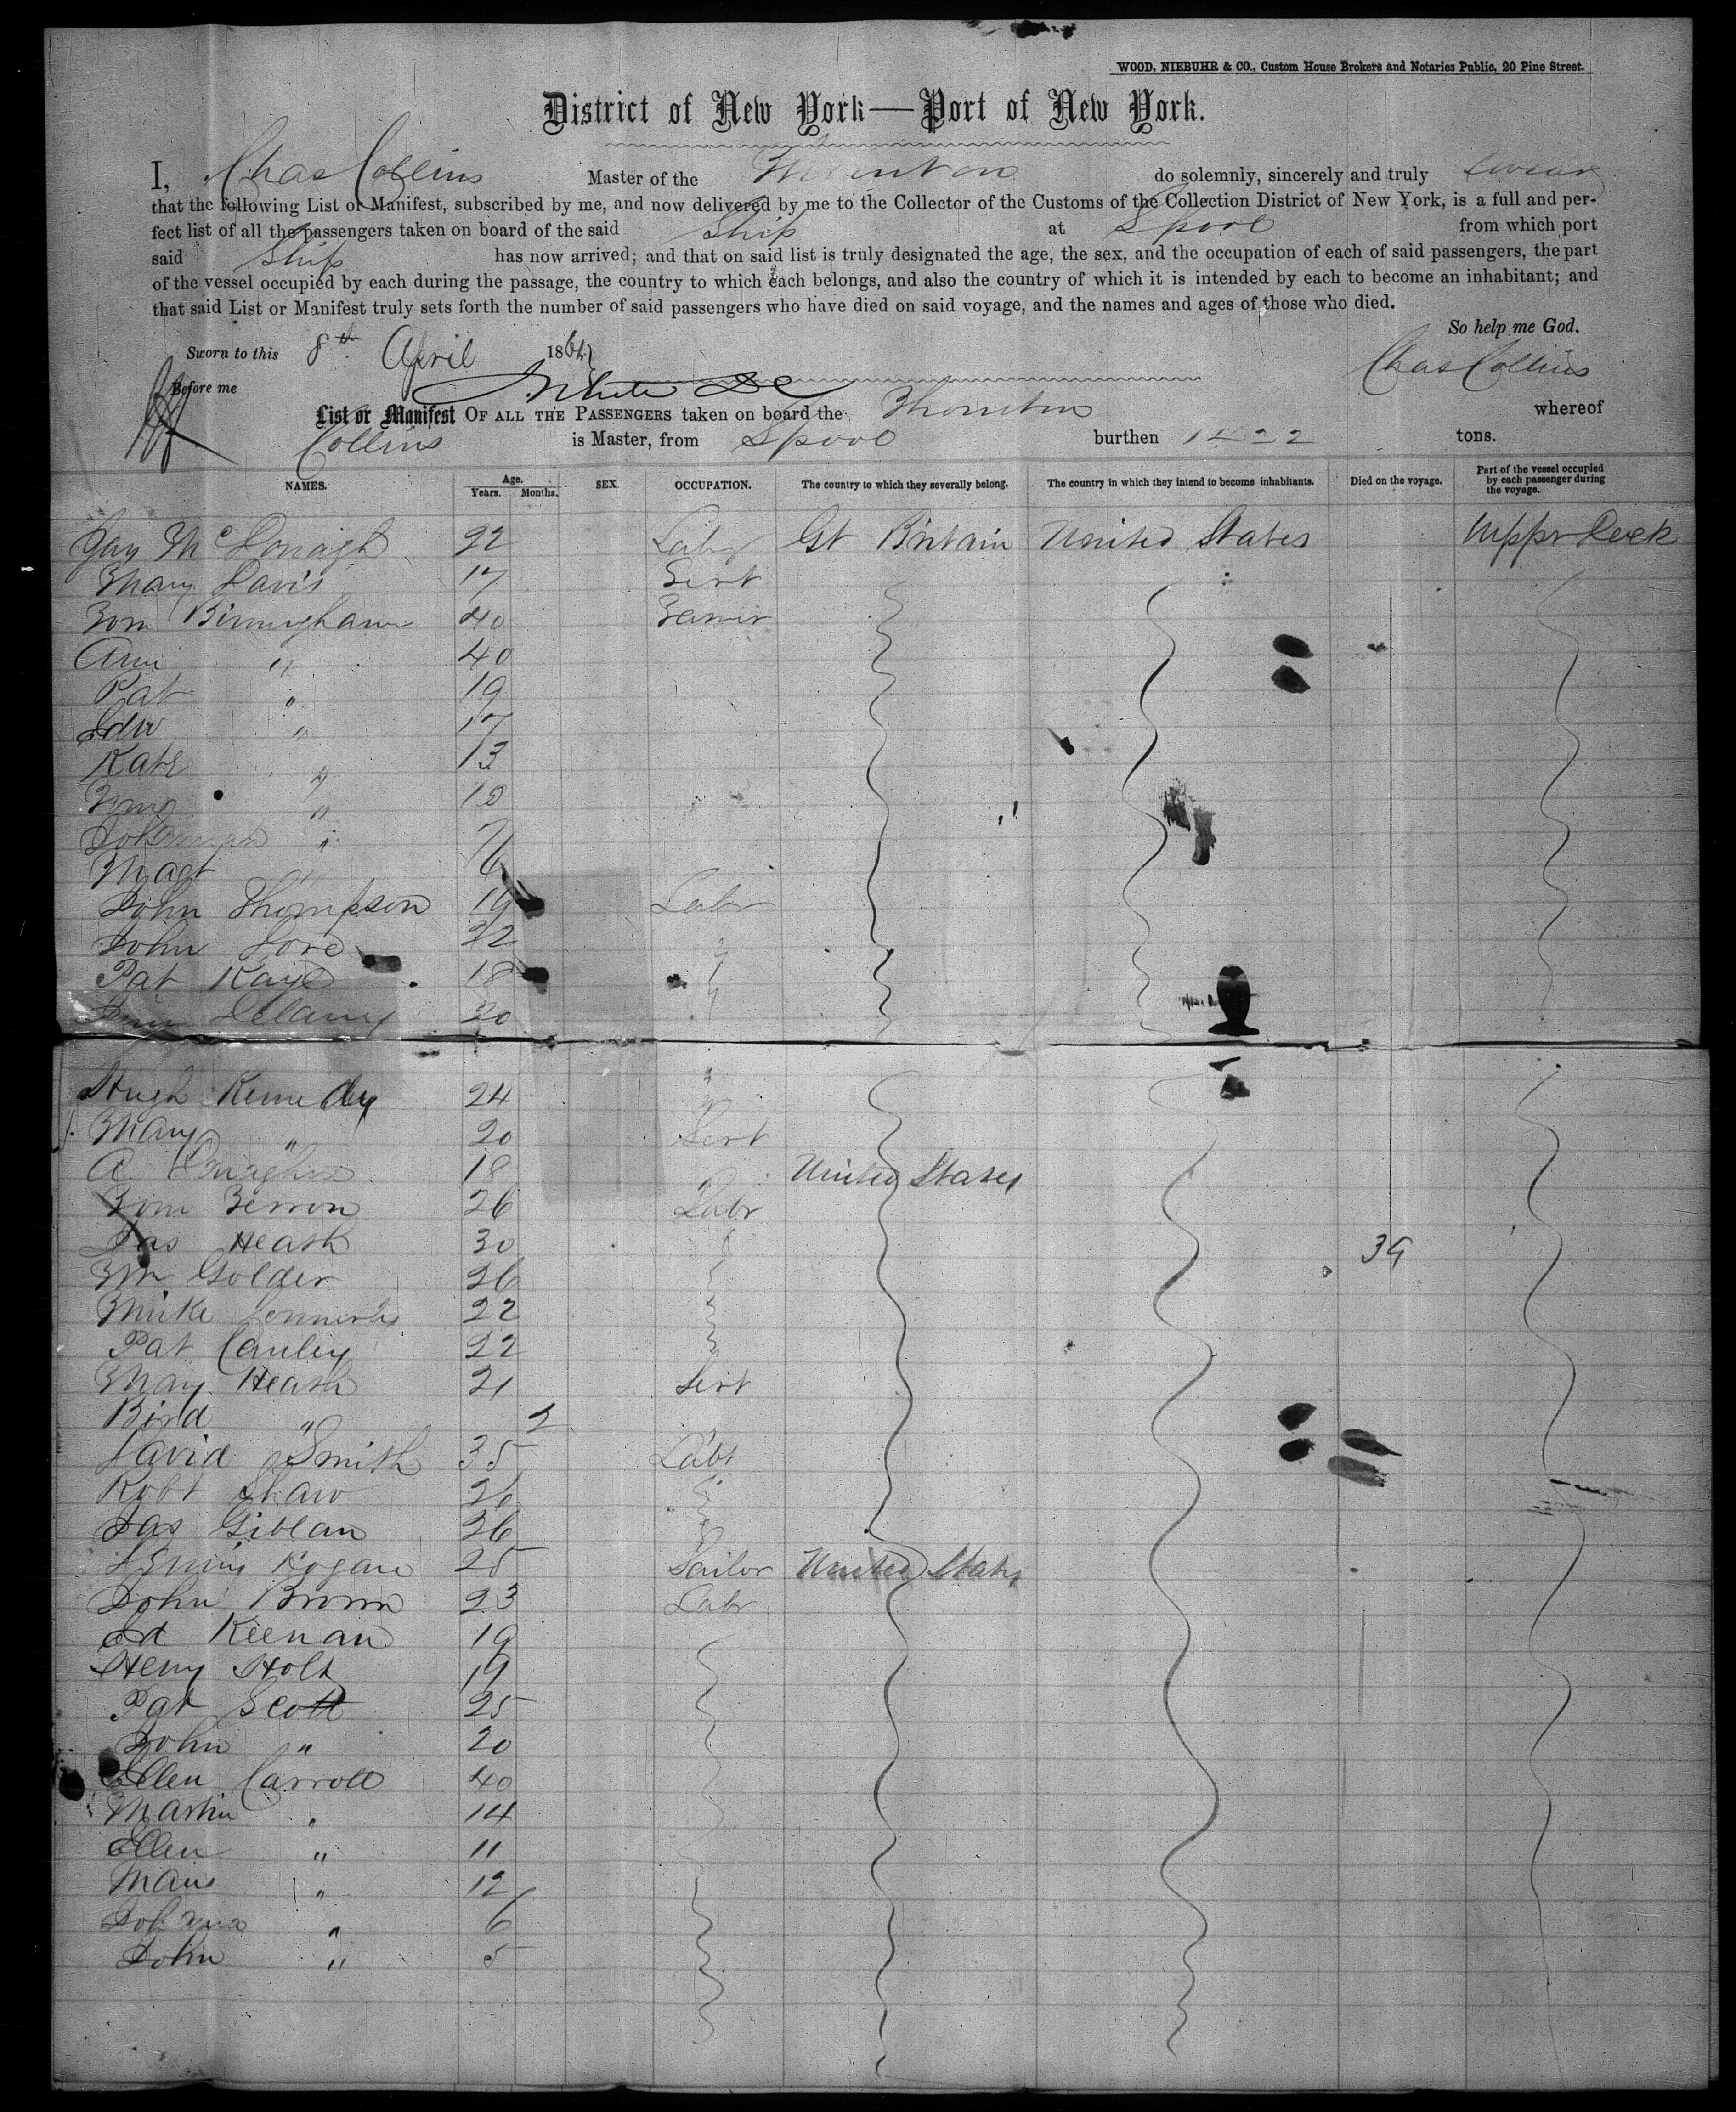 WOOD, NIEBUHR & CO., Custom House Brokers and Notaries Public, 20 Pine Street.
District of New York—Port of New York.
I, Chas Collins Master of the Thornton do solemnly, sincerely and truly swear
that the following List or Manifest, subscribed by me, and now delivered by me to the Collector of the Customs of the Collection District of New York, is a full and per-
fect list of all the passengers taken on board of the said Ship at Lpool from which port
said Ship has now arrived; and that on said list is truly designated the age, the sex, and the occupation of each of said passengers, the part
of the vessel occupied by each during the passage, the country to which each belongs, and also the country of which it is intended by each to become an inhabitant; and
that said List or Manifest truly sets forth the number of said passengers who have died on said voyage, and the names and ages of those who died.
So help me God.
Sworn to this 8th April 186
Chas Collins
Before me
List or Manifest OF ALL THE PASSENGERS taken on board the Thornton whereof
Collins is Master, from Lpool burthen 1422 tons.
NAMES. Age. Years. Months. SEX. OCCUPATION. The country to which they severally belong. The country in which they intend to become inhabitants. Died on the voyage. Part of the vessel occupied by each passenger during the voyage.
McDonagh 22 Labr Gt Britain United States Uppr Deck
Mary Davis 17 Servt
Tom Birmingham 40 Farmer
Ann " 40
Pat " 19
Edw " 17
Kate " 13
" 10
Johannah " 7
Magt " 6
John Thompson 19 Labr
John Love 22
Pat Kaye 18 "
Delaney 30 "
Hugh Kennedy 24 "
Mary " 20 Servt
A 18 " United States
Tom Ferron 26 Labr
Jas Heash 30
Wm Golder 26
Mike 22
Pat Cauley 22
Mary Heash 21 Servt
Bird " 2
David Smith 35 Labr
Robt Shaw 26
Jas Giblan 36
Hogan 25 Sailor United States
John Brown 23 Labr
Ed Keenan 19
Heny Holt 19
Pat Scott 25
John " 20
Ellen Carroll 40
Martin " 14
Ellen " 11
" 12
Johana " 6
John " 5